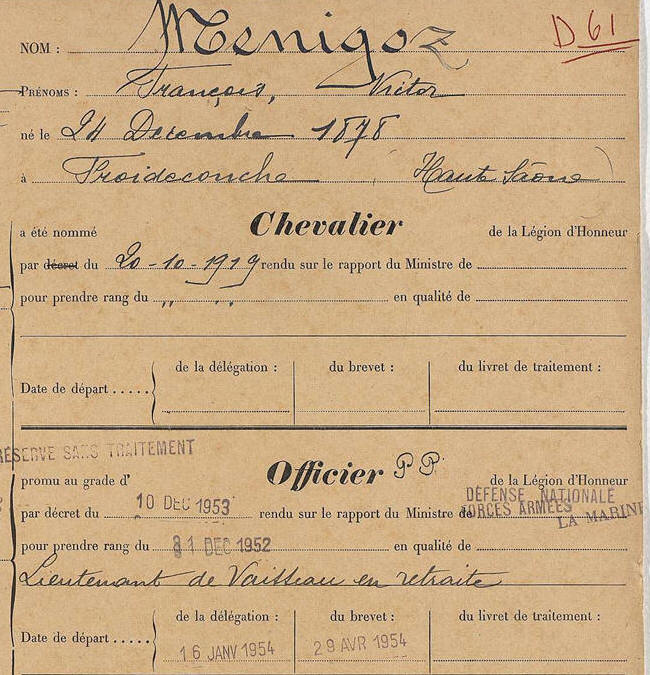 D 61
NOM : Menigoz
PRÉNOMS : François, Victor
né le 24 Décembre 1878
à Froideconche (Haute Saône)
a été nommé Chevalier de la Légion d'Honneur
par décret du 20-10-1919 rendu sur le rapport du Ministre de
pour prendre rang du " " en qualité de
de la délégation : du brevet : du livret de traitement :
Date de départ .....
RÉSERVE SANS TRAITEMENT
promu au grade d' Officier P P. de la Légion d'Honneur
DÉFENSE NATIONALE
par décret du 10 DEC 1953 rendu sur le rapport du Ministre de FORCES ARMÉES LA MARINE
pour prendre rang du 31 DEC 1952 en qualité de
Lieutenant de Vaisseau en retraite
de la délégation : du brevet : du livret de traitement :
Date de départ ..... 16 JANV 1954 29 AVR 1954